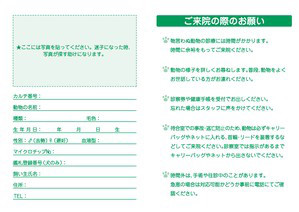 ★ここには写真を貼ってください。迷子になった時、
写真が探す助けになります。
カルテ番号：
動物の名前：
種類：　毛色：
生年月日：　年　月　日　生
性別：♂(去勢) ♀(避妊)　血液型：
マイクロチップNo.：
鑑札登録番号(犬のみ)：
飼い主氏名：
住所：
TEL：
ご来院の際のお願い
物言わぬ動物の診療には時間がかかります。
時間に余裕をもってご来院ください。
動物の様子を詳しくお尋ねします。普段、動物をよく
お世話している方がお連れください。
診察券や健康手帳を受付でお出しください。
忘れた場合はスタッフに声をかけてください。
待合室での事故・逃亡防止のため、動物は必ずキャリー
バッグやネットに入れる、首輪・リードを装着するな
どしてご来院ください。診察室では指示があるまで
キャリーバッグやネットから出さないでください。
時間外は、手術や往診中のことがあります。
急患の場合は対応可能かどうか事前に電話にてご確
認ください。